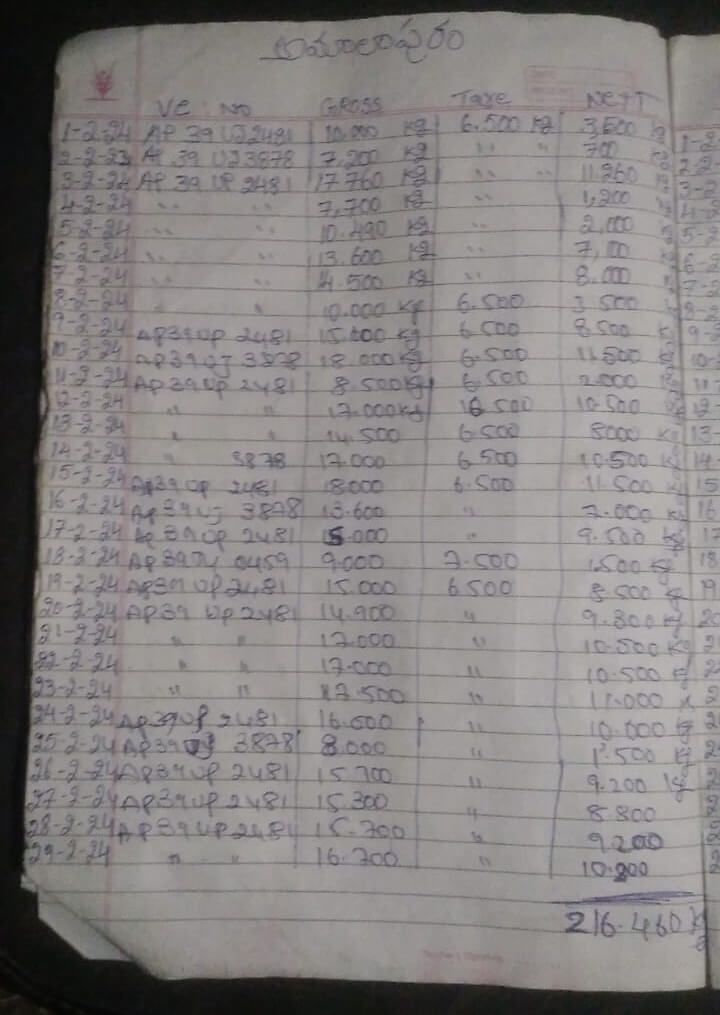 అమలాపురం
VE No GROSS Tare NETT
1-2-24 AP 39 UJ 2481 10.000 kg 6.500 kg 3,500 kg
2-2-23 AP 39 UJ 3878 7,200 kg " " 700 kg
3-2-24 AP 39 UP 2481 17760 kg " " 11.260 kg
4-2-24 " " 7,700 kg " 1,200 kg
5-2-24 " " 10.490 kg " 2,000 kg
6-2-24 " " 13.600 kg " 7,100 kg
7-2-24 " " 14.500 kg " 8.000 kg
8-2-24 " " 10.000 kg 6.500 3.500 kg
9-2-24 AP39UP 2481 15.000kg 6.500 8.500 kg
10-2-24 AP39UJ 3878 18.000kg 6.500 11.500 kg
11-2-24 AP39UP 2481 8.500kg 6.500 2.000 kg
12-2-24 " " 17.000kg 6.500 10.500 kg
13-2-24 " " 14.500 6.500 8000 kg
14-2-24 " 3878 17.000 6.500 10.500 kg
15-2-24 AP39UP 2481 18.000 6.500 11.500 kg
16-2-24 AP39UJ 3878 13.600 " 7.000 kg
17-2-24 AP39UP 2481 5.000 " 9.500 kg
18-2-24 AP39TU 0459 9.000 7.500 1.500 kg
19-2-24 AP39UP2481 15.000 6.500 8.500 kg
20-2-24 AP39 UP 2481 14.900 " 9.300 kg
21-2-24 " " 17.000 " 10.500 kg
22-2-24 " " 17.000 " 10.500 kg
23-2-24 " " 17.500 " 11.000 k
24-2-24 AP39UP 2481 16.600 " 10.000 kg
25-2-24 AP39UJ 3878 8.000 " 1.500 kg
26-2-24 AP39UP 2481 15.700 " 9.200 kg
27-2-24 AP39UP 2481 15.300 " 8.800
28-2-24 AP39UP 2481 15.700 " 9.200
29-2-24 " " 16.700 " 10.200
216.460 kg